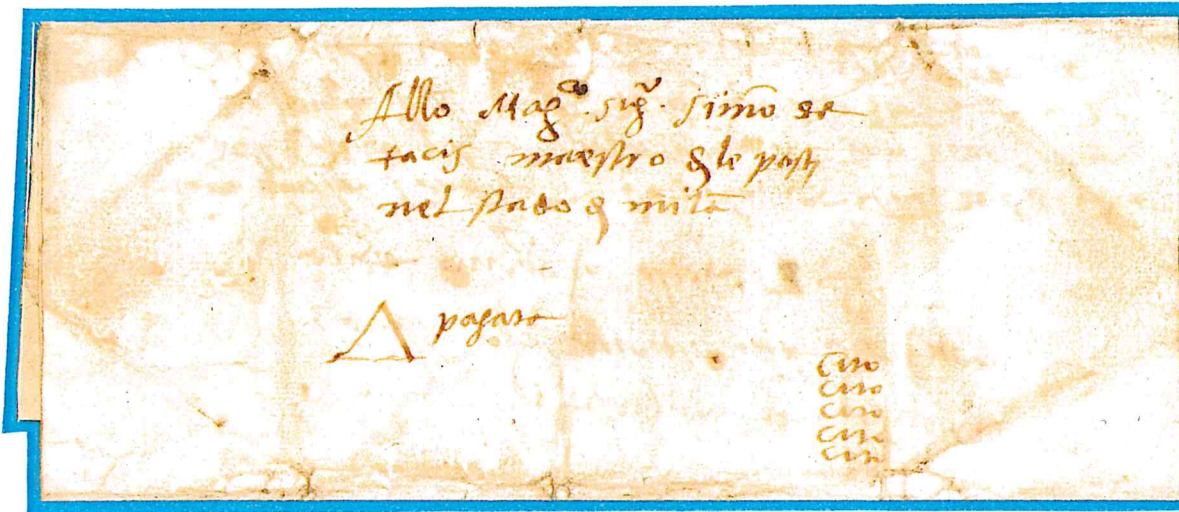 Allo Mag.co Sig.r Simō de
tacis maestro de le poste
nel stado de milā
pagata
Cito
Cito
Cito
Cito
Cito